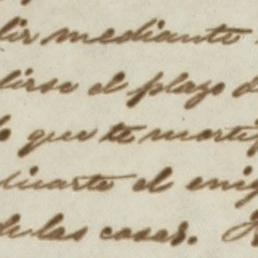 dir mediante
dirse el plazo d
lo que te mortif
plicarte el enig
de las cosas.